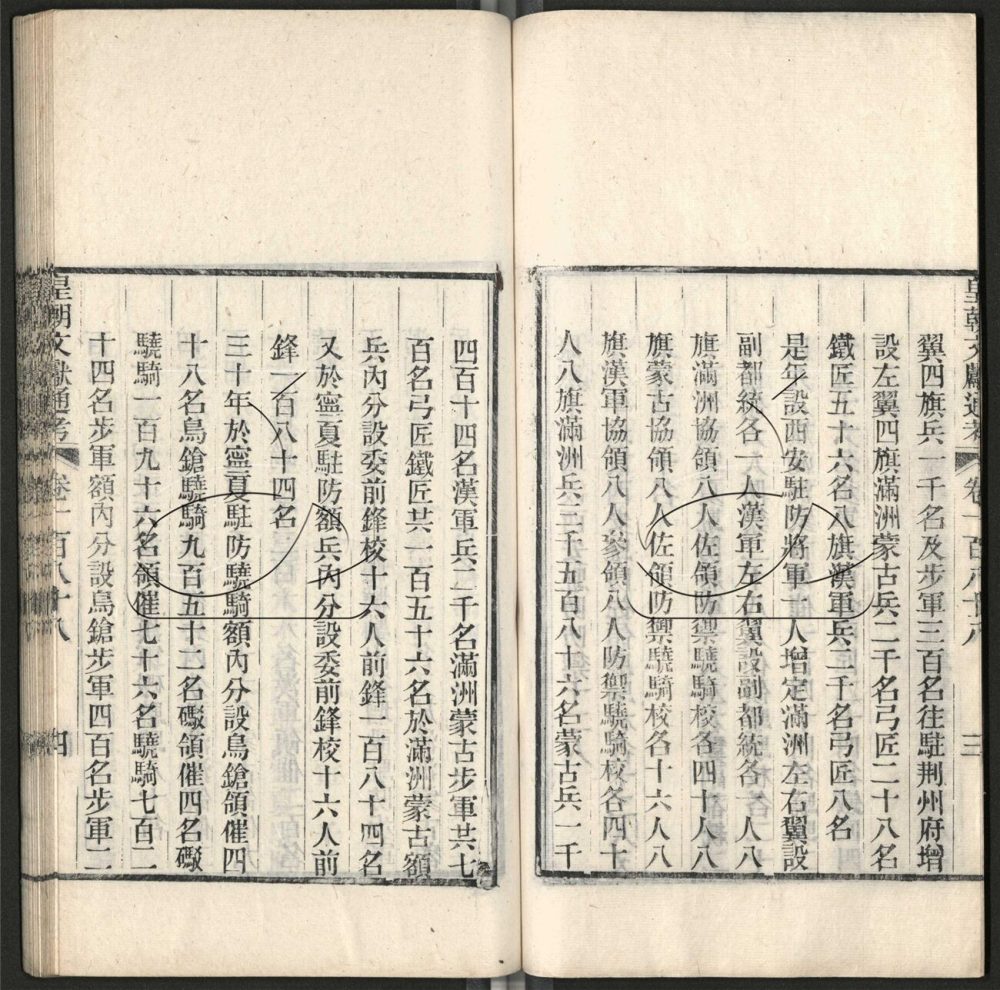 皇朝文獻通考 卷一百八十八 三
翼四旗兵一千名及步軍三百名往駐荆州府增
設左翼四旗滿洲蒙古兵二千名弓匠二十八名
鐵匠五十六名八旗漢軍兵二千名弓匠八名
是年設西安駐防將軍一人增定滿洲左右翼設
副都統各一人漢軍左右翼設副都統各一人八
旗滿洲協領八人佐領防禦驍騎校各四十人八
旗蒙古協領八人佐領防禦驍騎校各十六人八
旗漢軍協領八人參領八人防禦驍騎校各四十
人八旗滿洲兵三千五百八十六名蒙古兵一千
四百十四名漢軍兵二千名滿洲蒙古步軍共七
百名弓匠鐵匠共一百五十六名於滿洲蒙古額
兵內分設委前鋒校十六人前鋒一百八十四名
又於寧夏駐防額兵內分設委前鋒校十六人前
鋒一百八十四名
三十年於寧夏駐防驍騎額內分設鳥鎗領催四
十八名鳥鎗驍騎九百五十二名礮領催四名礮
驍騎一百九十六名領催七十六名驍騎七百二
十四名步軍額內分設鳥鎗步軍四百名步軍二
皇朝文獻通考 卷一百八十八 四